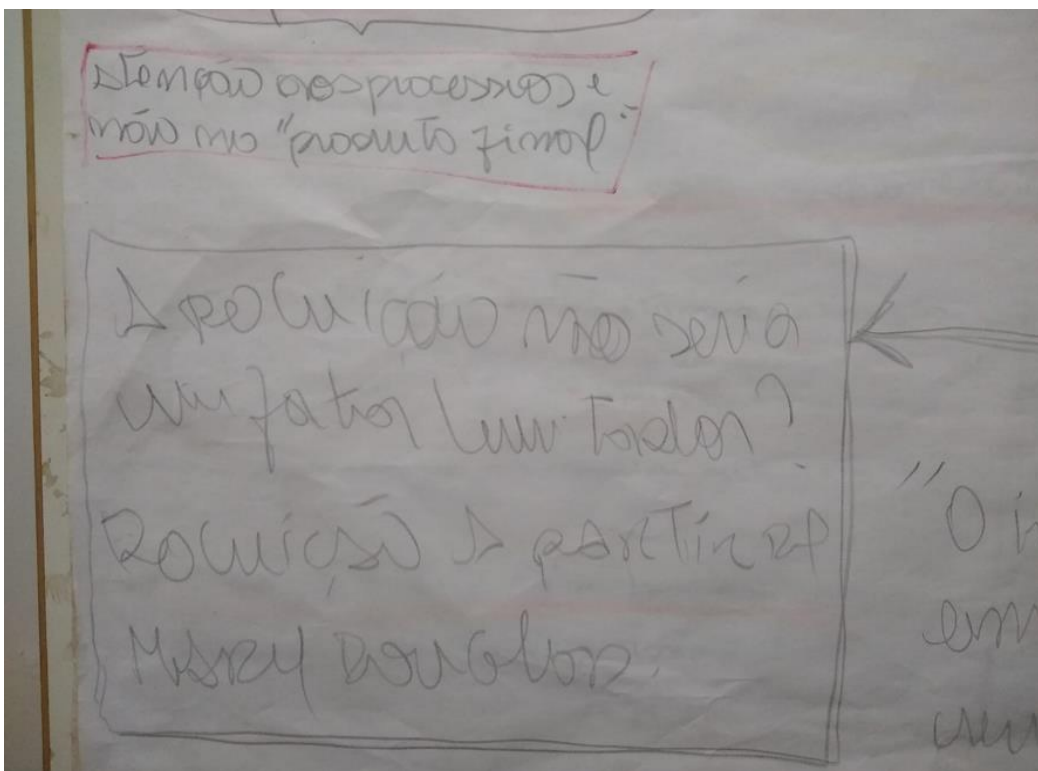 Atenção aos processos e
não no "produto final"
A poluição não seria
um fator limitador?
Poluição a partir de
Mary Douglas.
"O
em